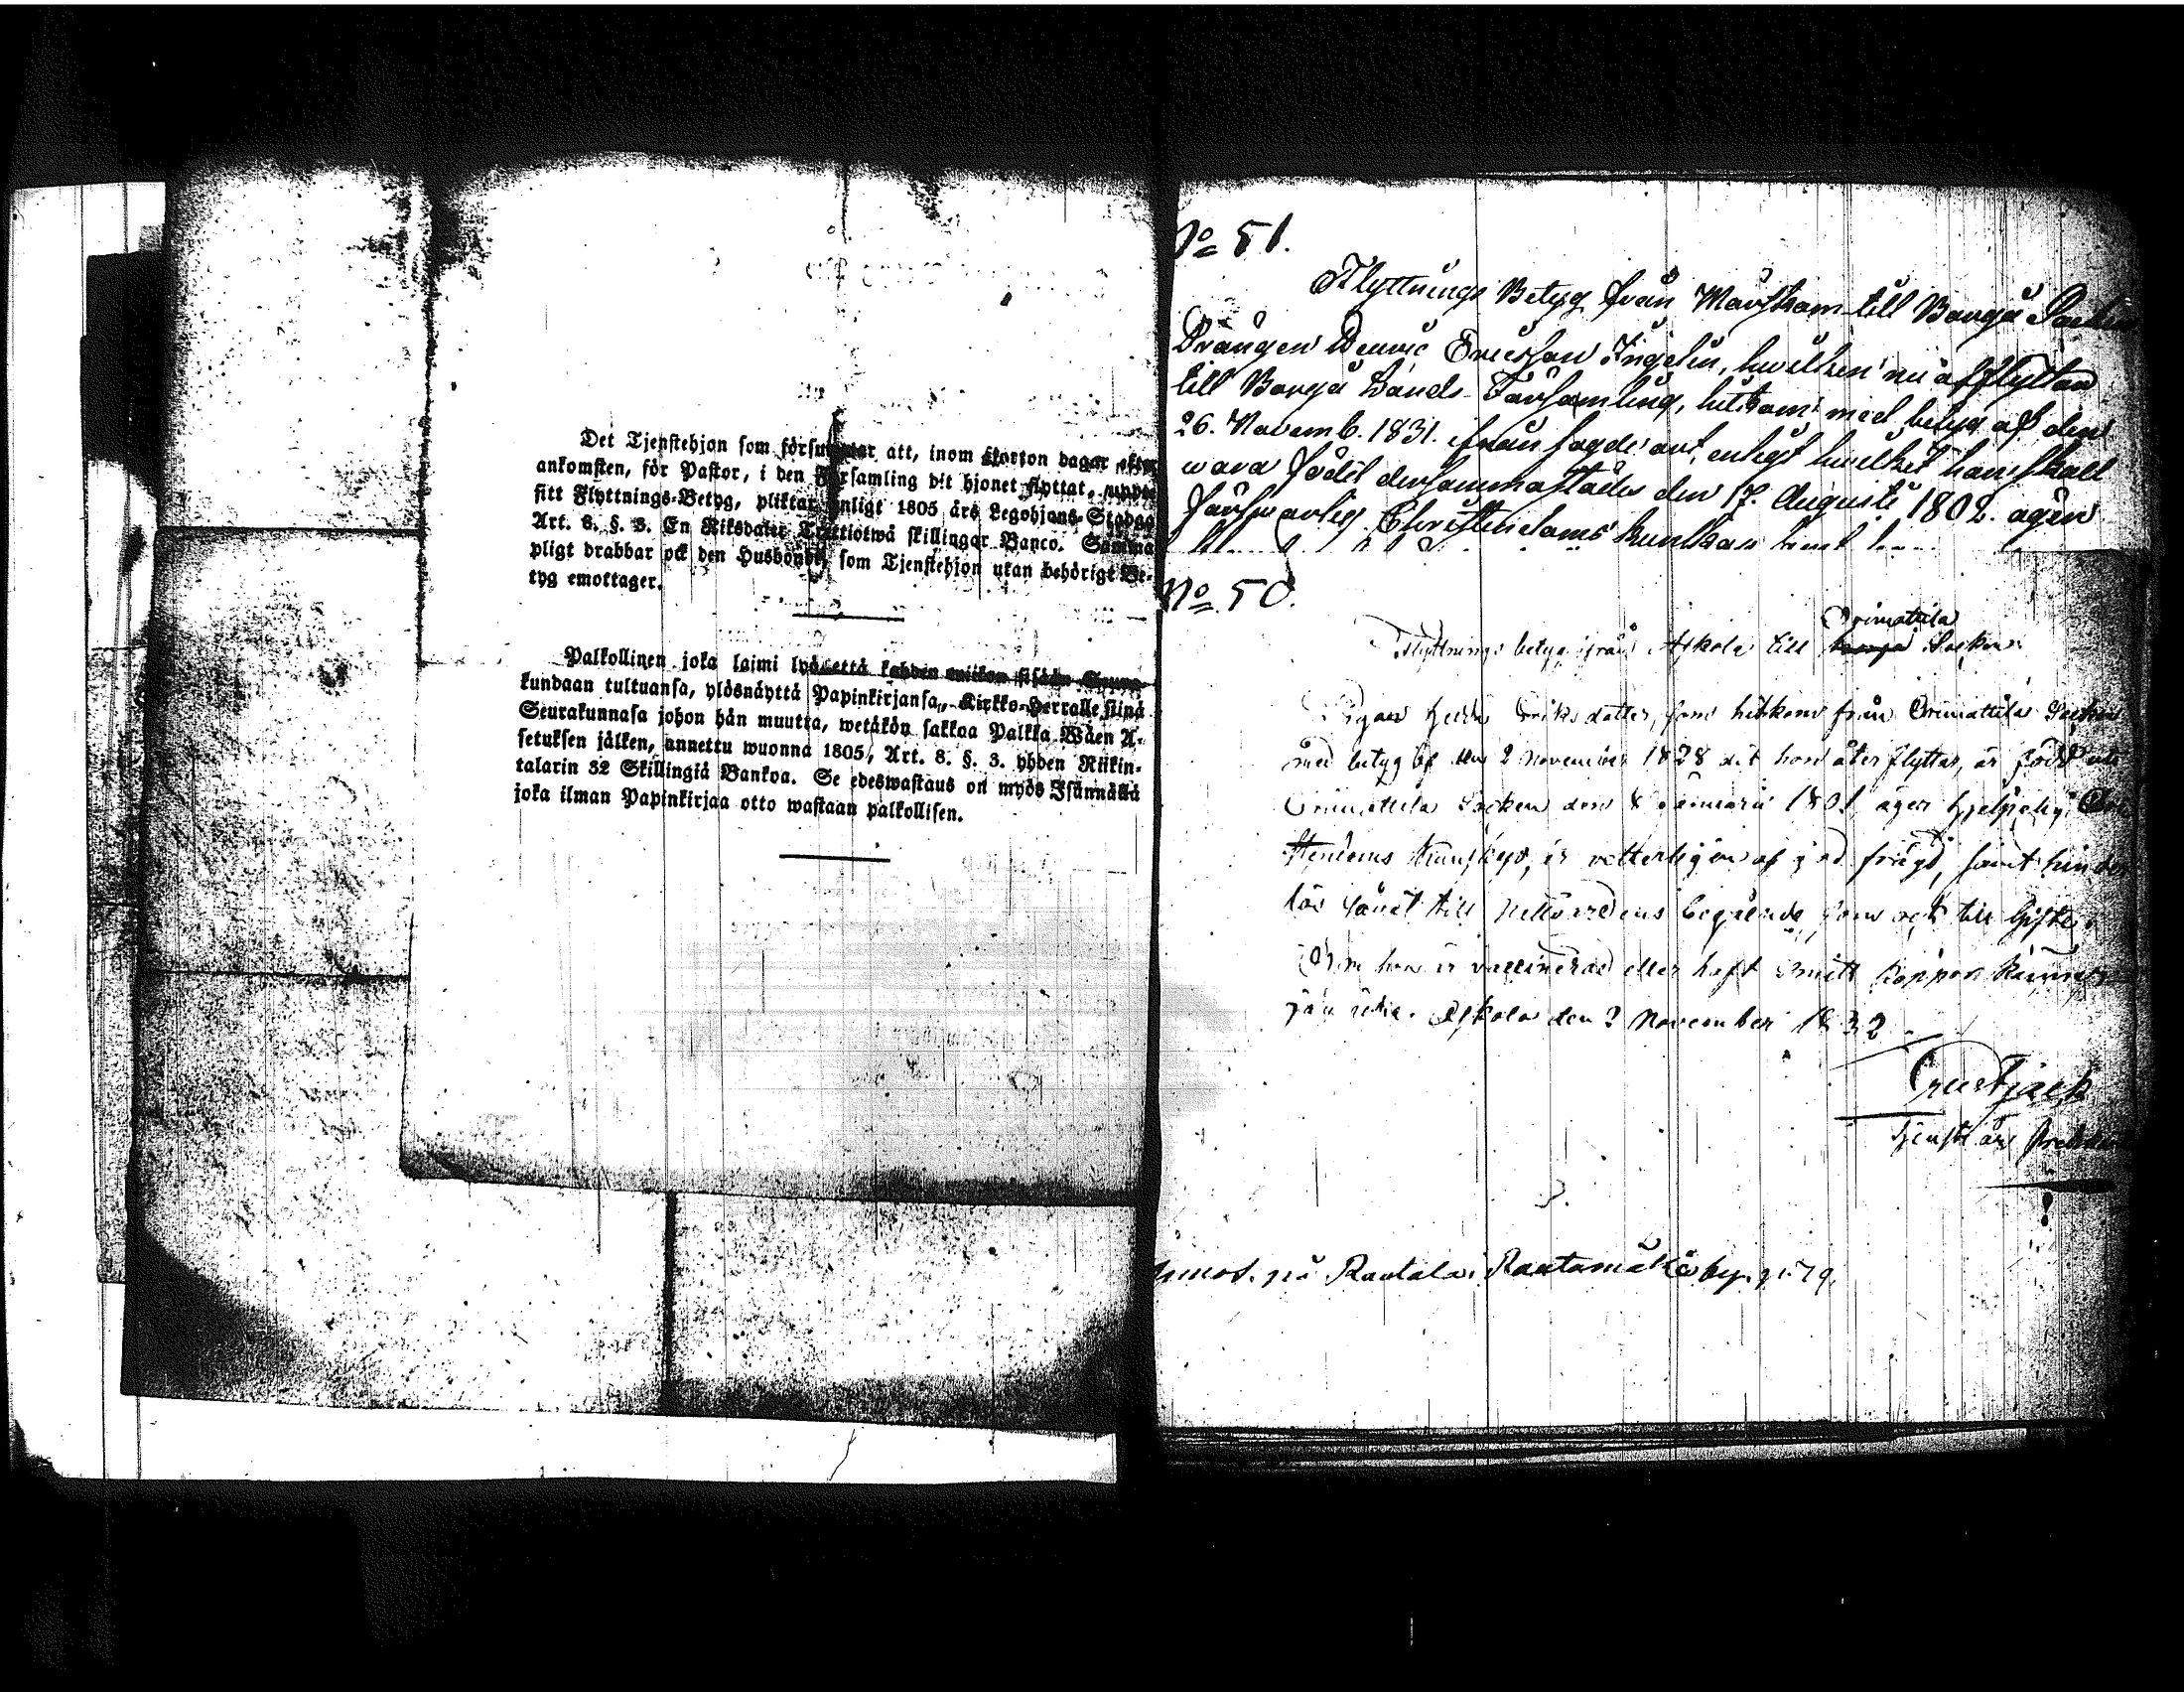 Det Tjenstehjon som försummar att, inom fjorton dagar efter
ankomsten, för Pastor, i den Församling dit hjonet flyttat, uppte
sitt Flyttnings-Betyg, pliktar enligt 1805 års Legohjons-Stadga
Art. 8. §. 3. En Riksdaler Trettiotwå skillingar Banco. Samma
pligt drabbar ock den Husbonde, som Tjenstehjon utan behörigt Be-
tyg emottager.
Palkollinen joka laimi lyö, että kahden wiikon sisään Seura-
kundaan tultuansa, ylösnäyttä Papinkirjansa, Kirkko-Herralle siinä
Seurakunnasa johon hän muutta, wetäkön sakkoa Palkka Wäen A-
setuksen jälken, annettu wuonna 1805, Art. 8. §. 3. yhden Riikin-
talarin 32 Skillingiä Bankoa. Se edeswastaus on myös Isännällä
joka ilman Papinkirjaa otto wastaan palkollisen.
No 51.
Flyttnings Betyg från Mörskom till Borgå Socken
Drängen Ericsson Ingelin, hwilken nu afflyttar
till Borgå Lands Församling, hitkom med betyg af den
26. Novemb. 1831. ifrån sagde ort, enligt hwilket han skall
wara född dersammastädes den 17. Augusti 1802. ägen
försvarlig Christendoms kunskap samt
No 50.
Orimattila
Flyttnings betyg ifrån Askola till Socken
Pigan Eriksdotter, som hitkom från Orimattila Socken
med betyg af den 2 November 1828 dit hon återflyttar, är född uti
Orimattila Socken den 8 Januarii 1801, äger hjelpelig Chri
stendoms kunskap, är veterligen af god frägd, samt hinder
lös såväl till Nattvardens begående som ock till Gifte.
Om hon är vaccinerad eller haft Smittkoppor känner
jag icke. Askola den 2 November 1832
Tjenst. för
på Rautala i Rautamäki by. p. 79.